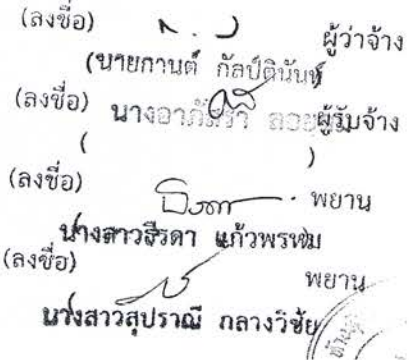 (ลงชื่อ) ผู้ว่าจ้าง
(นายกานต์ กัลป์ตินันท์
(ลงชื่อ) ผู้รับจ้าง
( )
(ลงชื่อ) พยาน
นางสาวธีรดา แก้วพรหม
(ลงชื่อ) พยาน
นางสาวสุปราณี กลางวิชัย